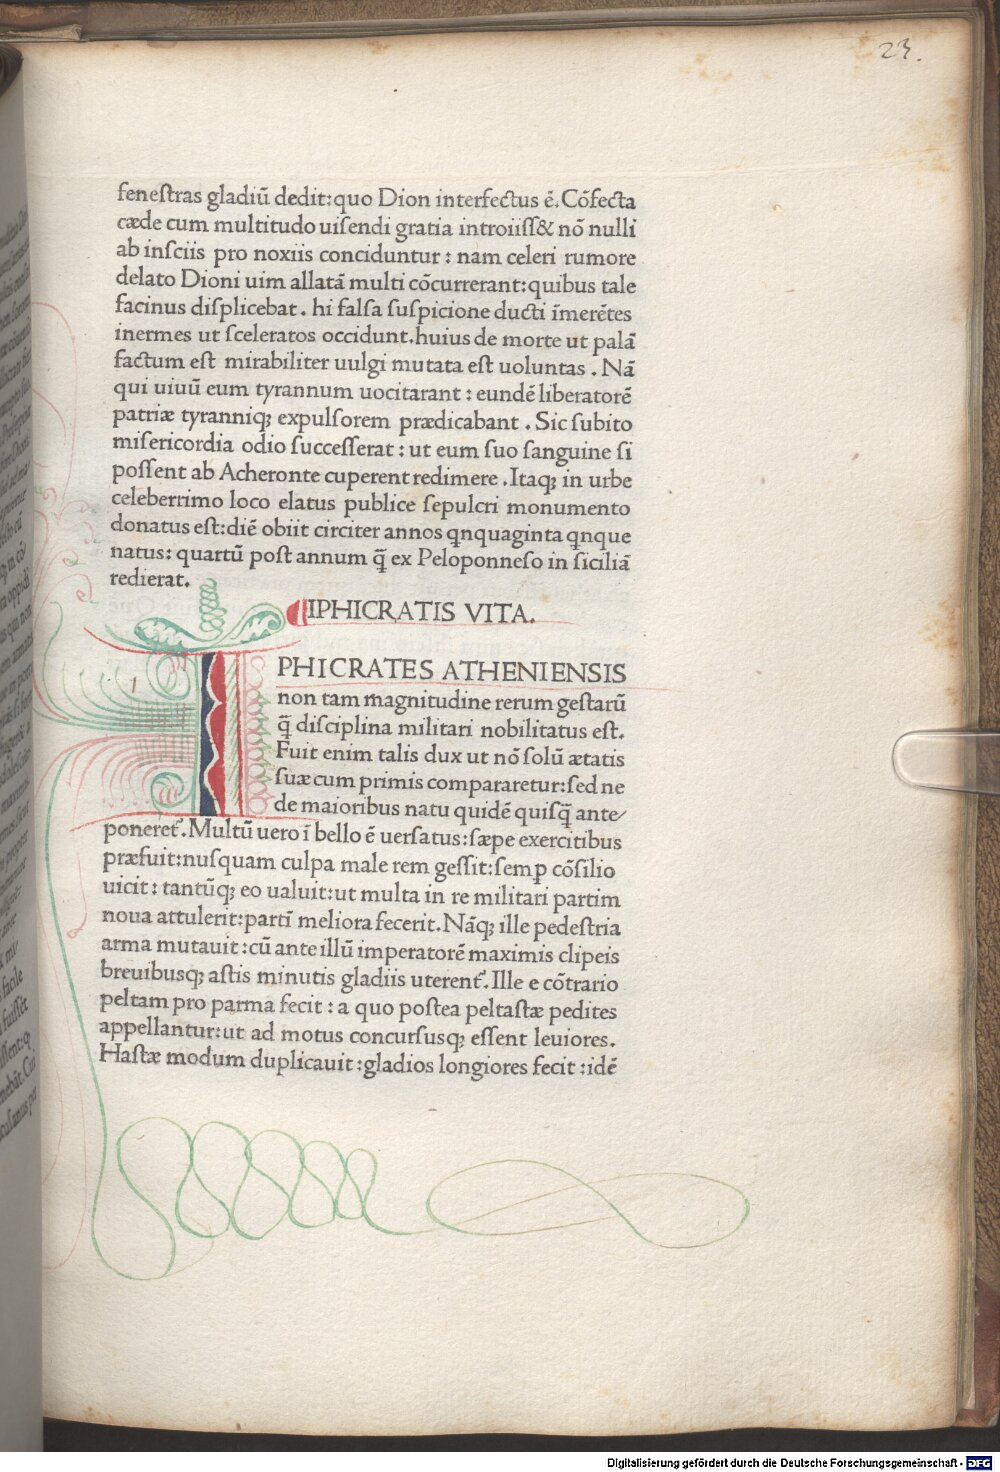 23.
feneſtras gladiū dedit:quo Dion interfectus ē.Cōfecta
cæde cum multitudo uiſendi gratia introiiſſ& nō nulli
ab inſciis pro noxiis conciduntur : nam celeri rumore
delato Dioni uim allatā multi cōcurrerant:quibus tale
facinus diſplicebat . hi falſa ſuſpicione ducti īmerētes
inermes ut ſceleratos occidunt.huius de morte ut palā
factum eſt mirabiliter uulgi mutata eſt uoluntas . Nā
qui uiuū eum tyrannum uocitarant : eundē liberatorē
patriæ tyranniqꝫ expulſorem prædicabant . Sic ſubito
miſericordia odio ſucceſſerat : ut eum ſuo ſanguine ſi
poſſent ab Acheronte cuperent redimere .Itaqꝫ in urbe
celeberrimo loco elatus publice ſepulcri monumento
donatus eſt:diē obiit circiter annos qnquaginta qnque
natus: quartū poſt annum q̄ ex Peloponneſo in ſiciliā
redierat.
IPHICRATIS VITA.
IPHICRATES ATHENIENSIS
non tam magnitudine rerum geſtarū
q̄ diſciplina militari nobilitatus eſt.
Fuit enim talis dux ut nō ſolū ætatis
ſuæ cum primis compararetur:ſed ne
de maioribus natu quidē quiſq̄ ante/
poneret᷑.Multū uero ī bello ē uerſatus:ſæpe exercitibus
præfuit:nuſquam culpa male rem geſſit:ſemꝑ cōſilio
uicit : tantūqꝫ eo ualuit:ut multa in re militari partim
noua attulerit:partī meliora fecerit.Nāqꝫ ille pedeſtria
arma mutauit :cū ante illū imperatorē maximis clipeis
breuibusqꝫ aſtis minutis gladiis uterent᷑.Ille e cōtrario
peltam pro parma fecit : a quo poſtea peltaſtæ pedites
appellantur:ut ad motus concurſusqꝫ eſſent leuiores.
Haſtæ modum duplicauit :gladios longiores fecit :idē
Digitalisierung gefördert durch die Deutsche Forschungsgemeinschaft - DFG